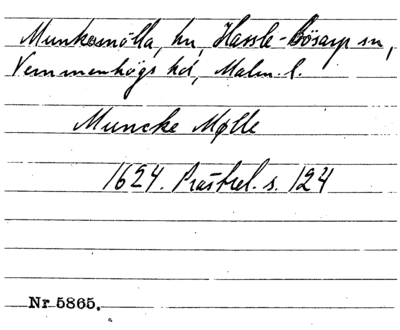 Munkamölla, hn, Hassle-Bösarp sn,
Vemmenhögs hd, Malm. l.
Muncke Mølle
1624. Prästrel. s. 124
Nr 5865.